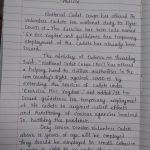 National Cadet Corps has offered its
volunteer cadets for national duty to fight
Covid-19. The Exercise has been named
'Ex NCC Yogdan' and guidelines for temporary
employment of the cadets has already been
issued.
The Ministry of Defence on Thursday
said, "National Cadet Corps (NCC) has offered
a helping hand to civilian authorities in the
country's fight against Covid-19 by
extending the services of cadets under
'Exercise NCC Yogdan'" and added "It has
issued guidelines for temporary employment
of its cadets to augment relief efforts
and functioning of various agencies involved
in tackling this pandemic.
Only Senior Division Volunteer Cadets
above 18 years of age will be employed.
They should be employed in small cohesive